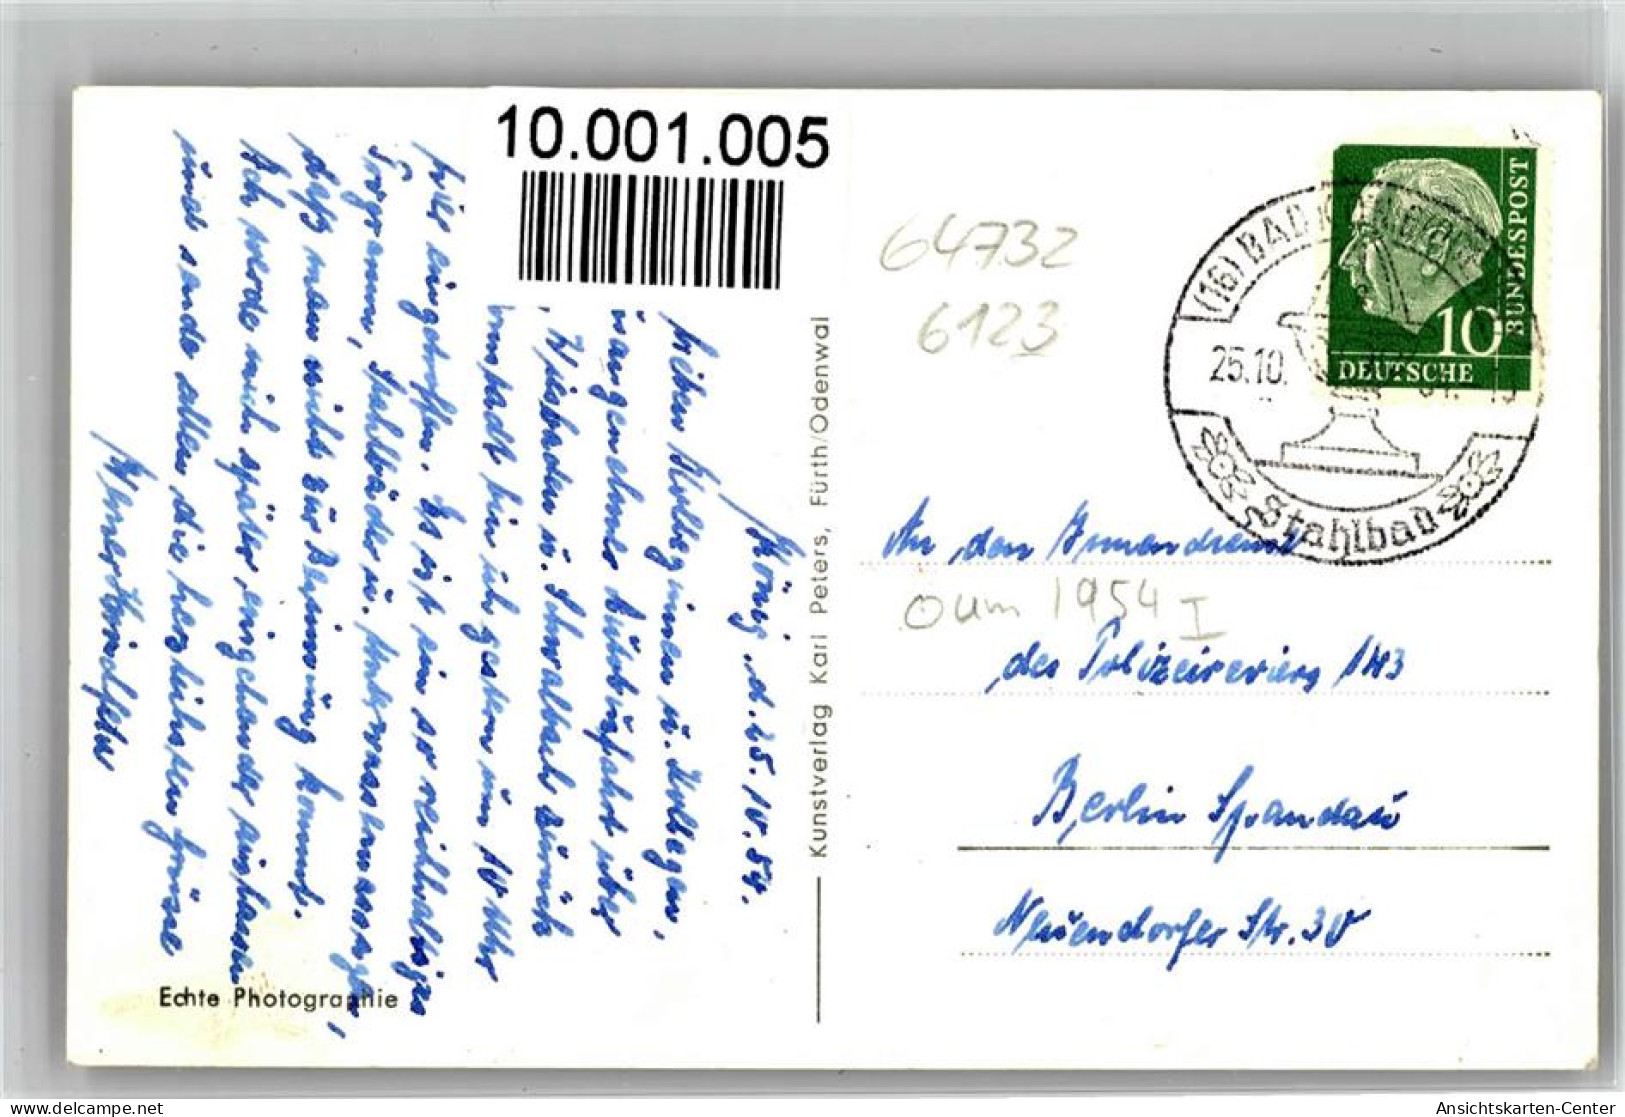 10.001.005
König, d. 25.10.54.
Lieben Kolleginnen u. Kollegen,
nach angenehmer Autobusfahrt über
Wiesbaden u. Schwalbach zurück
bin ich gestern um 10 Uhr
hier eingetroffen. Es ist ein so reichhaltiges
Programm, Stahlbäder u. Unterwassermassage,
daß man nicht zur Besinnung kommt.
Ich werde mich später eingehender auslassen
und sende allen die herzlichsten Grüße
Echte Photographie
Kunstverlag Karl Peters, Fürth/Odenwal
64732
6123
(16) BAD KÖNIG
25.10.
Stahlbad
DEUTSCHE
BUNDESPOST
10
An den
oum 1954 I
des Polizeireviers 143
Berlin Spandau
Neuendorfer Str. 30
Ansichtskarten-Center